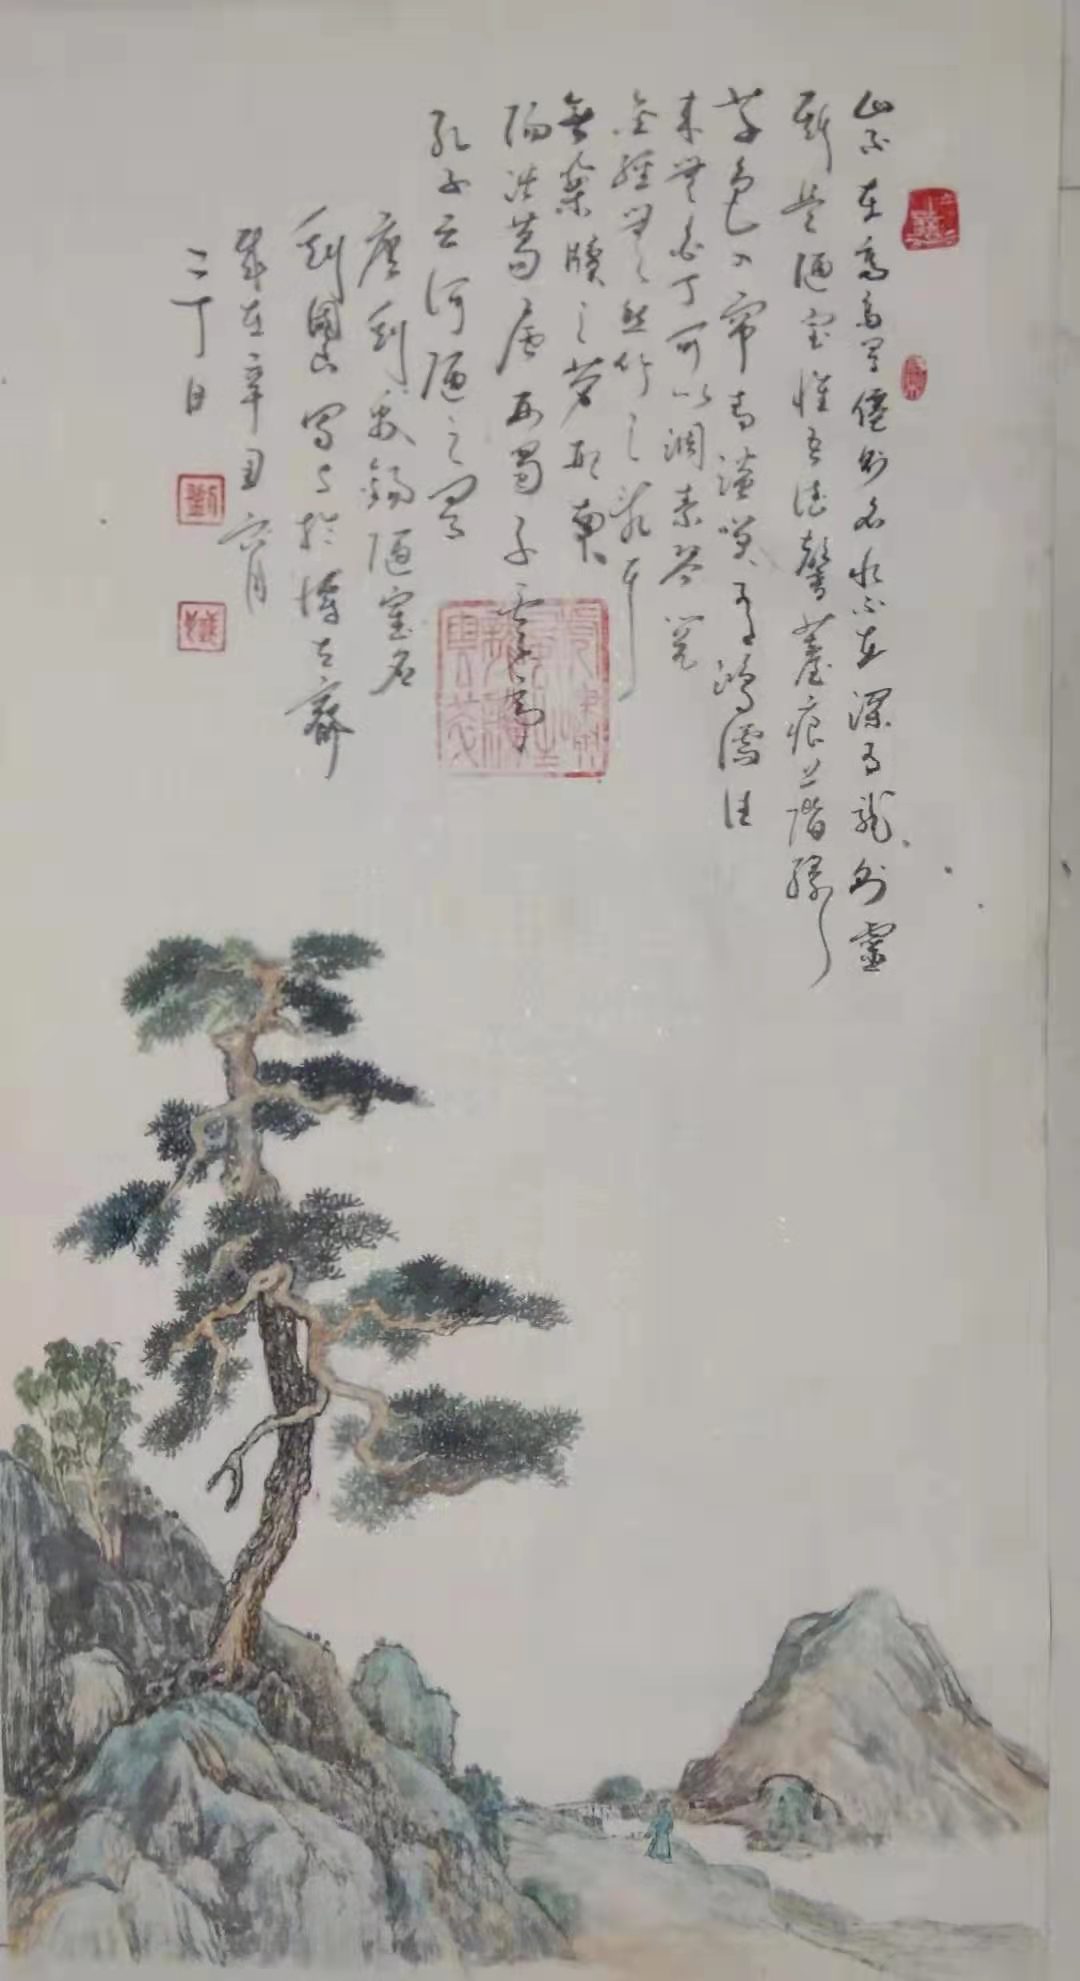 山不在高有僊則名水不在深有龍則靈
斯是陋室惟吾德馨薹痕上階綠
草色入帘青談笑有鴻儒往
来無白丁可以調素琴閱
金經無絲竹之亂耳
無案牘之勞形南
陽諸葛廬西蜀子雲亭
孔子云何陋之有
唐刘禹錫陋室名
劉 寫於 古齋
歲在辛丑六月
二丁日
劉